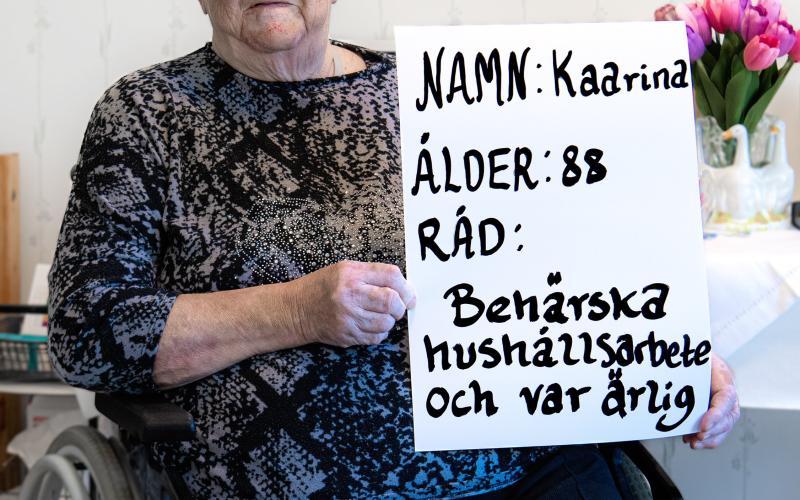 NAMN: Kaarina
ÅLDER: 88
RÅD:
Behärska
hushållsarbete
och var ärlig